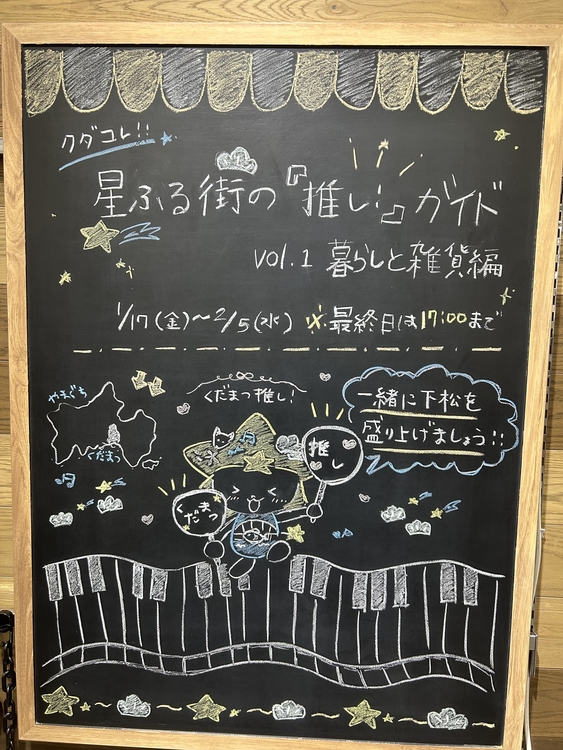 クダコレ!!
星ふる街の『推し』ガイド
vol.1 暮らしと雑貨編
1/17(金)〜2/5(水) ※最終日は17:00まで
やまぐち
くだまつ
くだまつ推し!
一緒に下松を
盛り上げましょう!!
推し
くだまつ